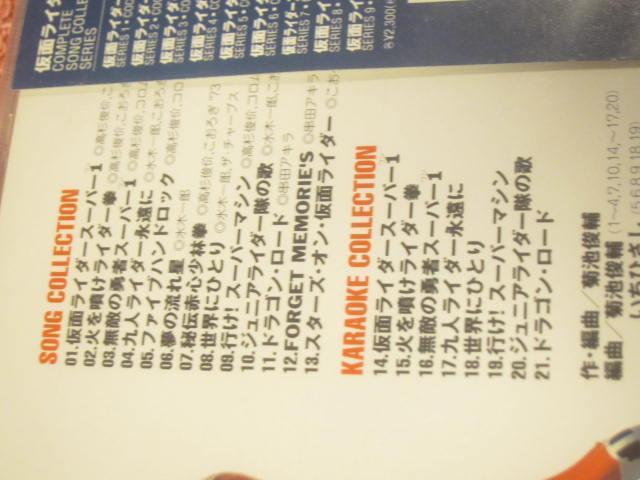 仮面ライダ
COMPLETE
SONG COLLE
SERIES
仮面ライダ
SERIES 1・COC
仮面ライダ
SERIES 2・COC
仮面ライダ
SERIES 3・COC
仮面ライダ
SERIES 4・COC
仮面ライダ
SERIES 5・COC
仮面ライダ
SERIES 6・C
仮面ライダ
SERIES 7・
仮面ライダ
SERIES 8・
仮面ライ
SERIES 9・
各¥2,300(
SONG COLLECTION
01.仮面ライダースーパー1 ◎高杉俊价,こおろぎ'73
02.火を噴けライダー拳 ◎高杉俊价,コロム
03.無敵の勇者スーパー1 ◎高杉俊价,こお
04.九人ライダー永遠に ◎高杉俊价,コロム
05.ファイブハンドロック ◎水木一郎,こおろ
06.夢の流れ星 ◎水木一郎
07.秘伝赤心少林拳 ◎高杉俊价,こおろぎ'73
08.世界にひとり ◎水木一郎,ザ・チャープス
09.行け!スーパーマシン ◎高杉俊价,コロム
10.ジュニアライダー隊の歌 ◎水木一郎,こ
11.ドラゴン・ロード ◎串田アキラ
12.FORGET MEMORIE'S ◎串田アキラ
13.スターズ・オン・仮面ライダー ◎こお
KARAOKE COLLECTION
14.仮面ライダースーパー1
15.火を噴けライダー拳
16.無敵の勇者スーパー1
17.九人ライダー永遠に
18.世界にひとり
19.行け!スーパーマシン
20.ジュニアライダー隊の歌
21.ドラゴン・ロード
作・編曲/菊池俊輔
(1〜4,7,10,14,〜17,20)
編曲/菊池俊輔
(5,6,8,9,18,19)
いちひさし